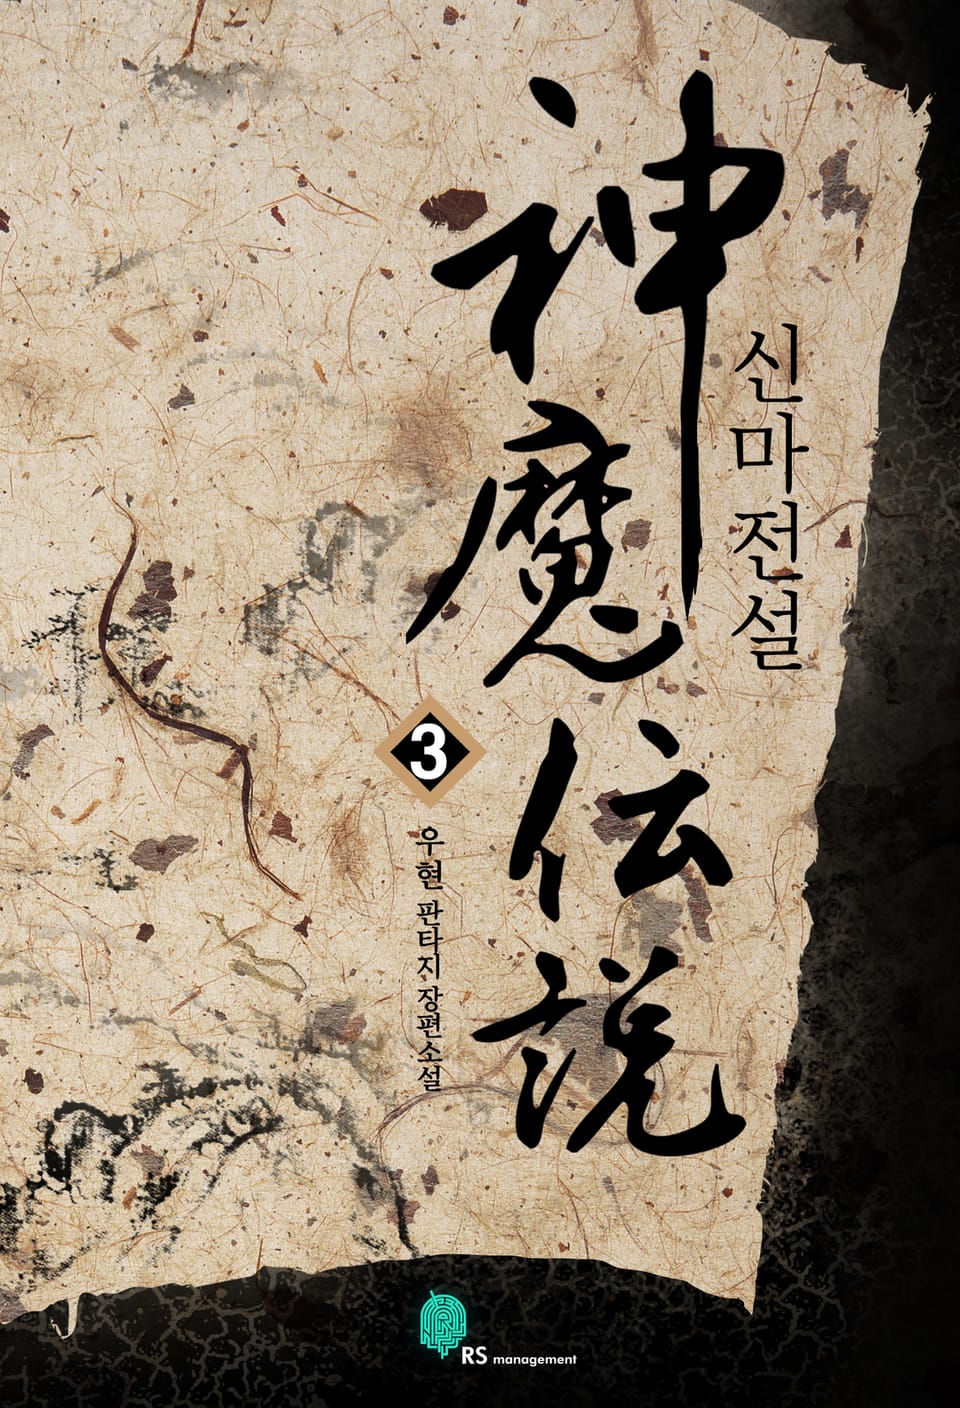 神魔伝説
신마전설
3
우현 판타지 장편소설
RS management